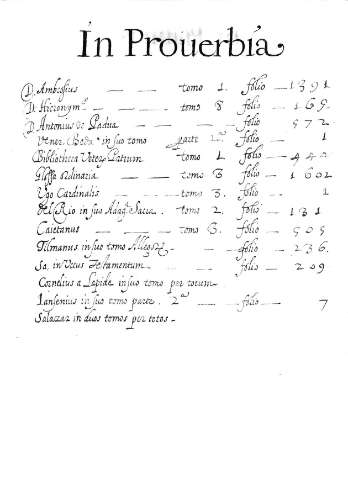 In Prouerbia
D. Ambrosius — — tomo 1. folio — 1391
D. Hieronym9 — — tomo 8 folio — 169.
D. Antonius de Padua — — folio — 572
Vener. Beda in suo tomo parte 2ª folio — 1
Bibliotheca Veter. Patrum tomo 1. folio — 442
Glossa ordinaria — — tomo 3 folio — 1602
Ugo Cardinalis — — tomo 3. folio — 1
del Rio in suo Adag. Sacra. tomo 2. folio — 131
Caietanus — — tomo 3. folio — 505
Tilmanus in suo tomo — folio — 236.
So. in Vetus Testamentum — — folio — 209
Cornelius a Lapide in suo tomo per totum —
Iansenius in suo tomo parte. 2ª — — folio — 7
Salazar in duos tomos per totos —